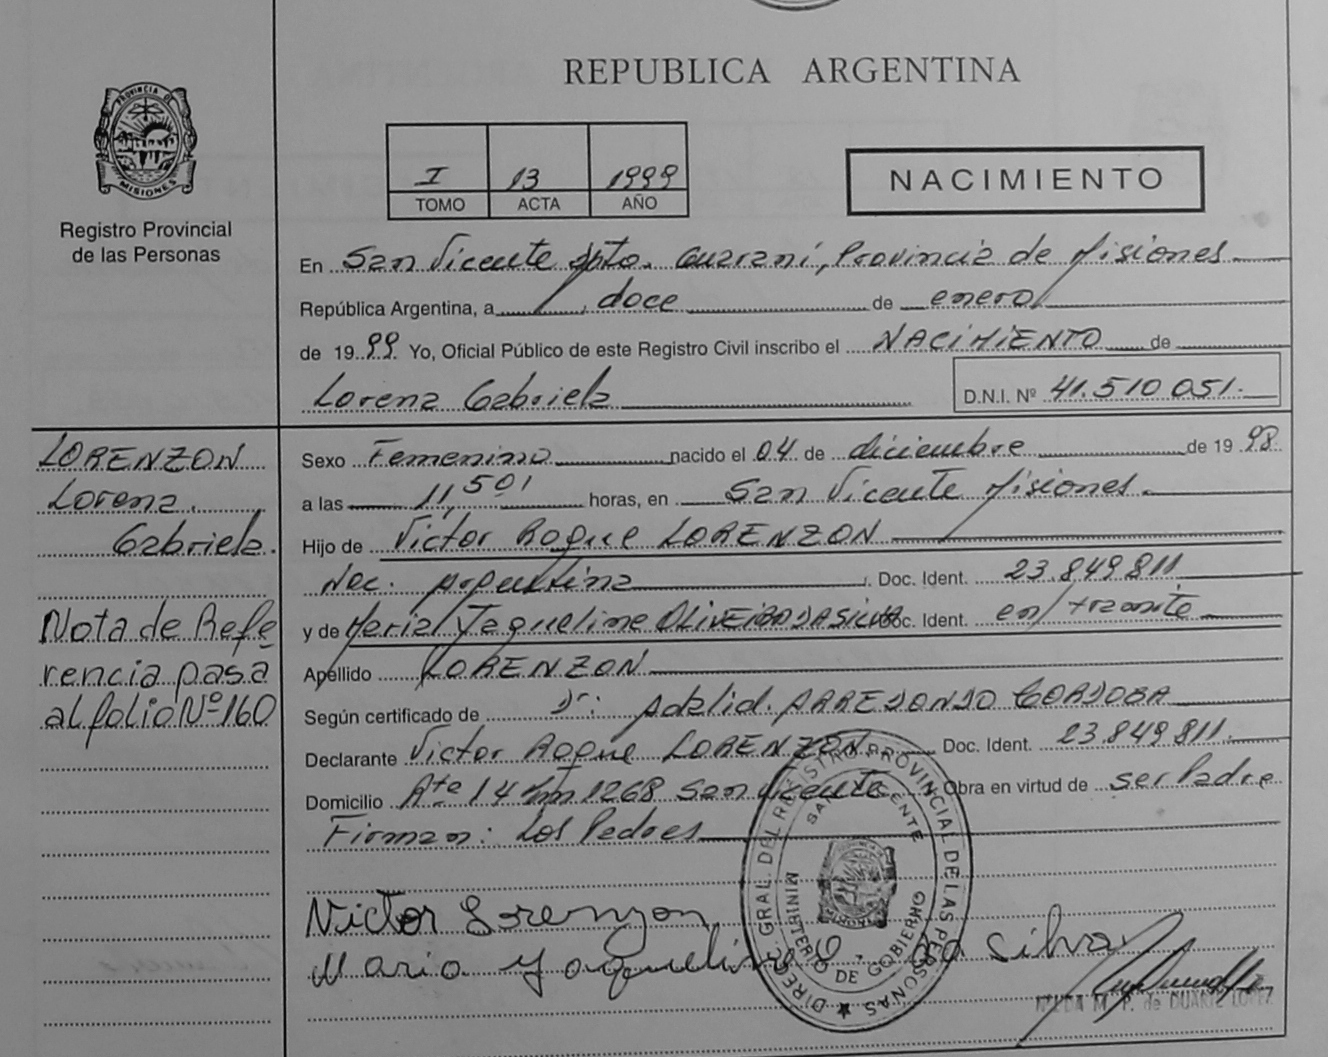 REPUBLICA ARGENTINA
PROVINCIA DE
MISIONES
Registro Provincial
de las Personas
I 13 1999
TOMO ACTA AÑO
NACIMIENTO
En San Vicente Dpto. Guaraní, Provincia de Misiones
República Argentina, a doce de enero
de 1999 Yo, Oficial Público de este Registro Civil inscribo el NACIMIENTO de
Lorena Gabriela D.N.I. Nº 41.510 051.
LORENZON
Lorena
Gabriela.
Nota de Refe
rencia pasa
al folio Nº 160
Sexo Femenino nacido el 04 de diciembre de 1998
a las 11,50 horas, en San Vicente Misiones
Hijo de Victor Roque LORENZON
Nac. Argentina Doc. Ident. 23.849.811
y de Maria Jaqueline OLIVEIRA DA SILVA Doc. Ident. en tramite
Apellido LORENZON
Según certificado de Dr: Adalid. ARREDONDO CORDOBA
Declarante Victor Roque LORENZON Doc. Ident. 23.849 811.
Domicilio Rta 14 km 1268 San Vicente Obra en virtud de ser Padre
Firman: Los Padres
Victor Lorenzon
Maria Yaqueline O. da Silva
DIREC. GRAL. DEL REGISTRO PROVINCIAL DE LAS PERSONAS
SAN VICENTE
MINISTERIO DE GOBIERNO
M. P. de DUARTE LOPEZ